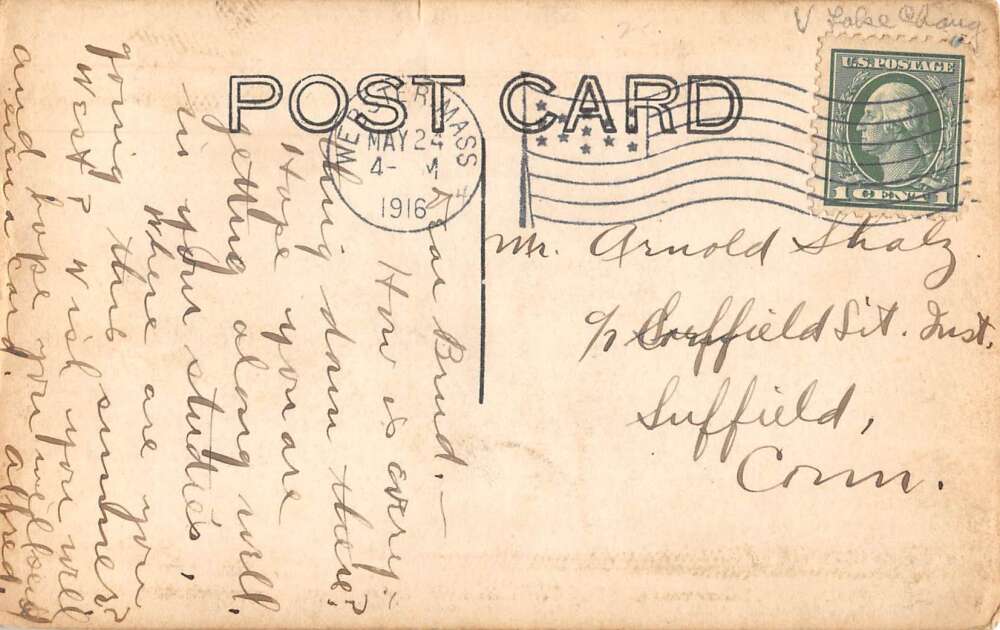 V False Chang
POST CARD
U.S. POSTAGE
1 CENT 1
MASS
MAY 24
4- M
1916
Mr. Arnold Shalz
c/o Suffield Lit. Inst.
Suffield,
Conn.
Dear Brud. —
How is every
thing down there?
Hope you are
getting along well
in your studies.
Where are you
going this summer?
West? Wish you well
and hope you will
Alfred.